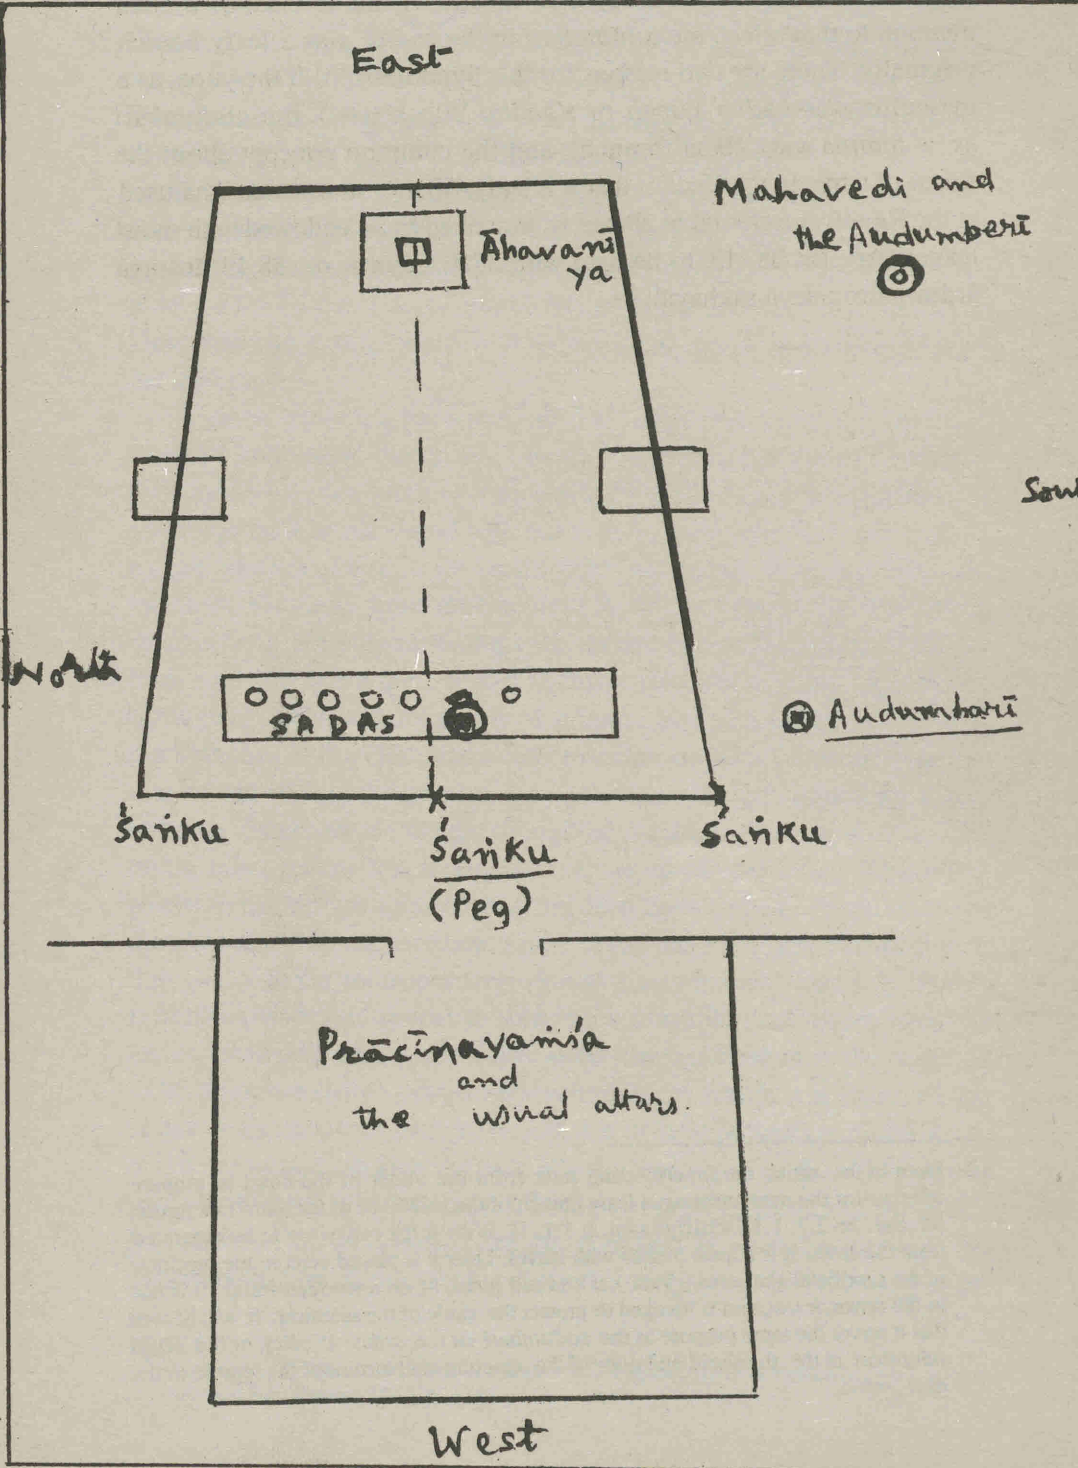 East
Mahavedi and
the Audumberī
Āhavanī
ya
North
SADAS
Audumbarī
Śaṅku
Śaṅku
(Peg)
Śaṅku
Prācīnavaṁśa
and
the usual altars.
West